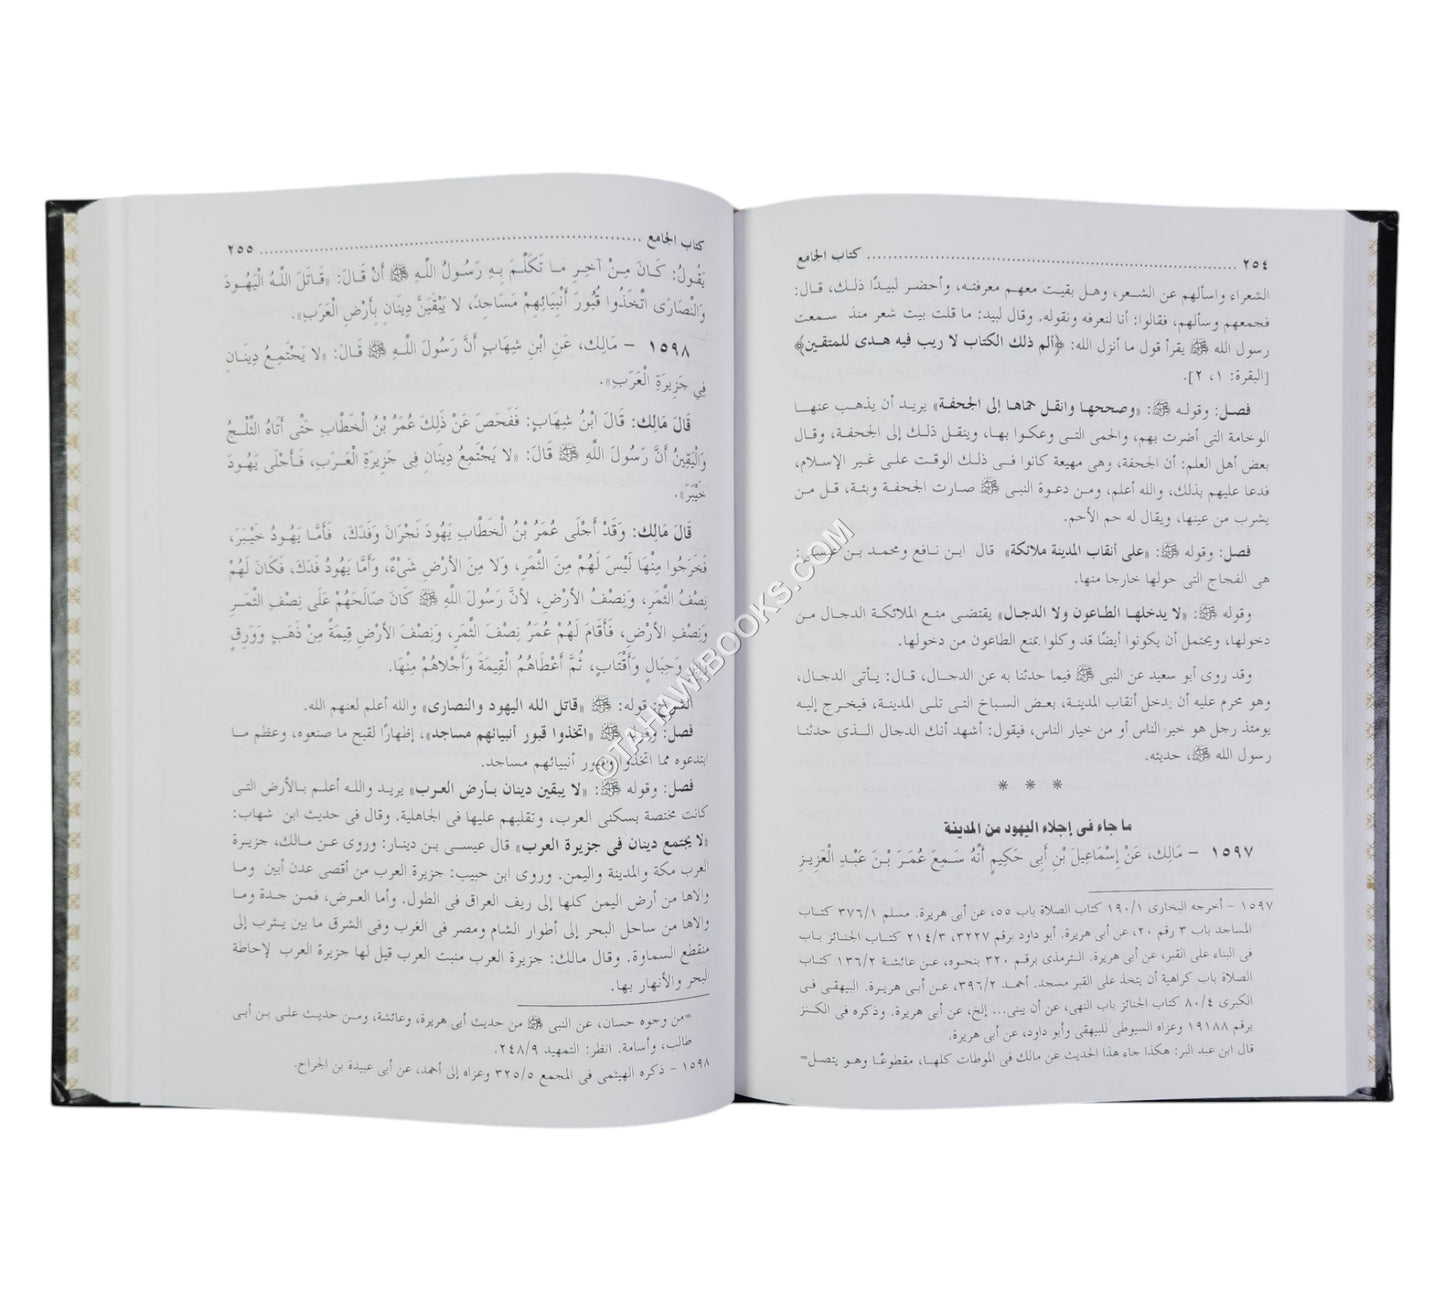 ٢٥٤ ........................................ كتاب الجامع
الشعراء واسألهم عن الشعر، وهل بقيت معهم معرفته، وأحضر لبيدًا ذلك، قال:
فجمعهم وسألهم، فقالوا: أنا لنعرفه ونقوله. وقال لبيد: ما قلت بيت شعر منذ سمعت
رسول الله ﷺ يقرأ قول ما أنزل الله: ﴿ألم ذلك الكتاب لا ريب فيه هدى للمتقين﴾
[البقرة: ١، ٢].
فصل: وقوله ﷺ: «وصححها وانقل حماها إلى الجحفة» يريد أن يذهب عنها
الوخامة التى أضرت بهم، والحمى التى وعكوا بها، وينقل ذلك إلى الجحفة، وقال
بعض أهل العلم: أن الجحفة، وهى مهيعة كانوا فى ذلك الوقت على غير الإسلام،
فدعا عليهم بذلك، والله أعلم، ومن دعوة النبى ﷺ صارت الجحفة وبئة، قل من
يشرب من عينها، ويقال له حم الأحم.
فصل: وقوله ﷺ: «على أنقاب المدينة ملائكة» قال ابن نافع ومحمد بن عيسى:
هى الفجاج التى حولها خارجا منها.
وقوله ﷺ: «لا يدخلها الطاعون ولا الدجال» يقتضى منع الملائكة الدجال من
دخولها، ويحتمل أن يكونوا أيضًا قد وكلوا بمنع الطاعون من دخولها.
وقد روى أبو سعيد عن النبى ﷺ فيما حدثنا به عن الدجال، قال: يأتى الدجال،
وهو محرم عليه أن يدخل أنقاب المدينة، بعض السباخ التى تلى المدينة، فيخرج إليه
يومئذ رجل هو خير الناس أو من خيار الناس، فيقول: أشهد أنك الدجال الذى حدثنا
رسول الله ﷺ، حديثه.
* * *
ما جاء فى إجلاء اليهود من المدينة
١٥٩٧ - مَالِك، عَنْ إِسْمَاعِيلَ بْنِ أَبِى حَكِيمٍ أَنَّهُ سَمِعَ عُمَرَ بْنَ عَبْدِ الْعَزِيزِ
١٥٩٧ - أخرجه البخارى ١٩٠/١ كتاب الصلاة باب ٥٥، عن أبى هريرة. مسلم ٣٧٦/١ كتاب
المساجد باب ٣ رقم ٢٠، عن أبى هريرة. أبو داود برقم ٣٢٢٧، ٢١٤/٣ كتاب الجنائز باب
فى البناء على القبر، عن أبى هريرة. الترمذى برقم ٣٢٠ بنحوه، عن عائشة ١٣٦/٢ كتاب
الصلاة باب كراهية أن يتخذ على القبر مسجد. أحمد ٣٩٦/٢، عن أبى هريرة. البيهقى فى
الكبرى ٨٠/٤ كتاب الجنائز باب النهى، عن أن يبنى... إلخ، عن أبى هريرة. وذكره فى الكنز
برقم ١٩١٨٨ وعزاه السيوطى للبيهقى وأبو داود، عن أبى هريرة.
قال ابن عبد البر: هكذا جاء هذا الحديث عن مالك فى الموطآت كلها، مقطوعًا وهو يتصل=
كتاب الجامع ........................................ ٢٥٥
يَقُولُ: كَانَ مِنْ آخِرِ مَا تَكَلَّمَ بِهِ رَسُولُ اللَّهِ ﷺ أَنْ قَالَ: «قَاتَلَ اللَّهُ الْيَهُودَ
وَالنَّصَارَى اتَّخَذُوا قُبُورَ أَنْبِيَائِهِمْ مَسَاجِدَ، لا يَبْقَيَنَّ دِينَانِ بِأَرْضِ الْعَرَبِ».
١٥٩٨ - مَالِك، عَنِ ابْنِ شِهَابٍ أَنَّ رَسُولَ اللَّهِ ﷺ قَالَ: «لا يَجْتَمِعُ دِينَانِ
فِى جَزِيرَةِ الْعَرَبِ».
قَالَ مَالِك: قَالَ ابْنُ شِهَابٍ: فَفَحَصَ عَنْ ذَلِكَ عُمَرُ بْنُ الْخَطَّابِ حَتَّى أَتَاهُ الثَّلْجُ
وَالْيَقِينُ أَنَّ رَسُولَ اللَّهِ ﷺ قَالَ: «لا يَجْتَمِعُ دِينَانِ فِى جَزِيرَةِ الْعَرَبِ، فَأَجْلَى يَهُودَ
خَيْبَرَ».
قَالَ مَالِك: وَقَدْ أَجْلَى عُمَرُ بْنُ الْخَطَّابِ يَهُودَ نَجْرَانَ وَفَدَكَ، فَأَمَّا يَهُودُ خَيْبَرَ،
فَخَرَجُوا مِنْهَا لَيْسَ لَهُمْ مِنَ الثَّمَرِ، وَلا مِنَ الأَرْضِ شَىْءٌ، وَأَمَّا يَهُودُ فَدَكَ، فَكَانَ لَهُمْ
نِصْفُ الثَّمَرِ، وَنِصْفُ الأَرْضِ، لأَنَّ رَسُولَ اللَّهِ ﷺ كَانَ صَالَحَهُمْ عَلَى نِصْفِ الثَّمَرِ
وَنِصْفِ الأَرْضِ، فَأَقَامَ لَهُمْ عُمَرُ نِصْفَ الثَّمَرِ، وَنِصْفَ الأَرْضِ قِيمَةً مِنْ ذَهَبٍ وَوَرِقٍ
وَإِبِلٍ وَحِبَالٍ وَأَقْتَابٍ، ثُمَّ أَعْطَاهُمُ الْقِيمَةَ وَأَجْلاهُمْ مِنْهَا.
الشرح: قوله: ﷺ «قاتل الله اليهود والنصارى» والله أعلم لعنهم الله.
فصل: وقوله ﷺ «اتخذوا قبور أنبيائهم مساجد»، إظهارًا لقبح ما صنعوه، وعظم ما
ابتدعوه مما اتخذوا وقبور أنبيائهم مساجد.
فصل: وقوله ﷺ: «لا يبقين دينان بأرض العرب» يريد والله أعلم بالأرض التى
كانت مختصة بسكنى العرب، وتقلبهم عليها فى الجاهلية. وقال فى حديث ابن شهاب:
«لا يجتمع دينان فى جزيرة العرب» قال عيسى بن دينار: وروى عن مالك، جزيرة
العرب مكة والمدينة واليمن. وروى ابن حبيب: جزيرة العرب من أقصى عدن أبين وما
والاها من أرض اليمن كلها إلى ريف العراق فى الطول. وأما العرض، فمن جدة وما
والاها من ساحل البحر إلى أطوار الشام ومصر فى الغرب وفى الشرق ما بين يثرب إلى
منقطع السماوة. وقال مالك: جزيرة العرب منبت العرب قيل لها جزيرة العرب لإحاطة
البحر والأنهار بها.
=من وجوه حسان، عن النبى ﷺ من حديث أبى هريرة، وعائشة، ومن حديث على بن أبى
طالب، وأسامة. انظر: التمهيد ٢٤٨/٩.
١٥٩٨ - ذكره الهيثمى فى المجمع ٣٢٥/٥ وعزاه إلى أحمد، عن أبى عبيدة بن الجراح.
©TAHAWIBOOKS.COM